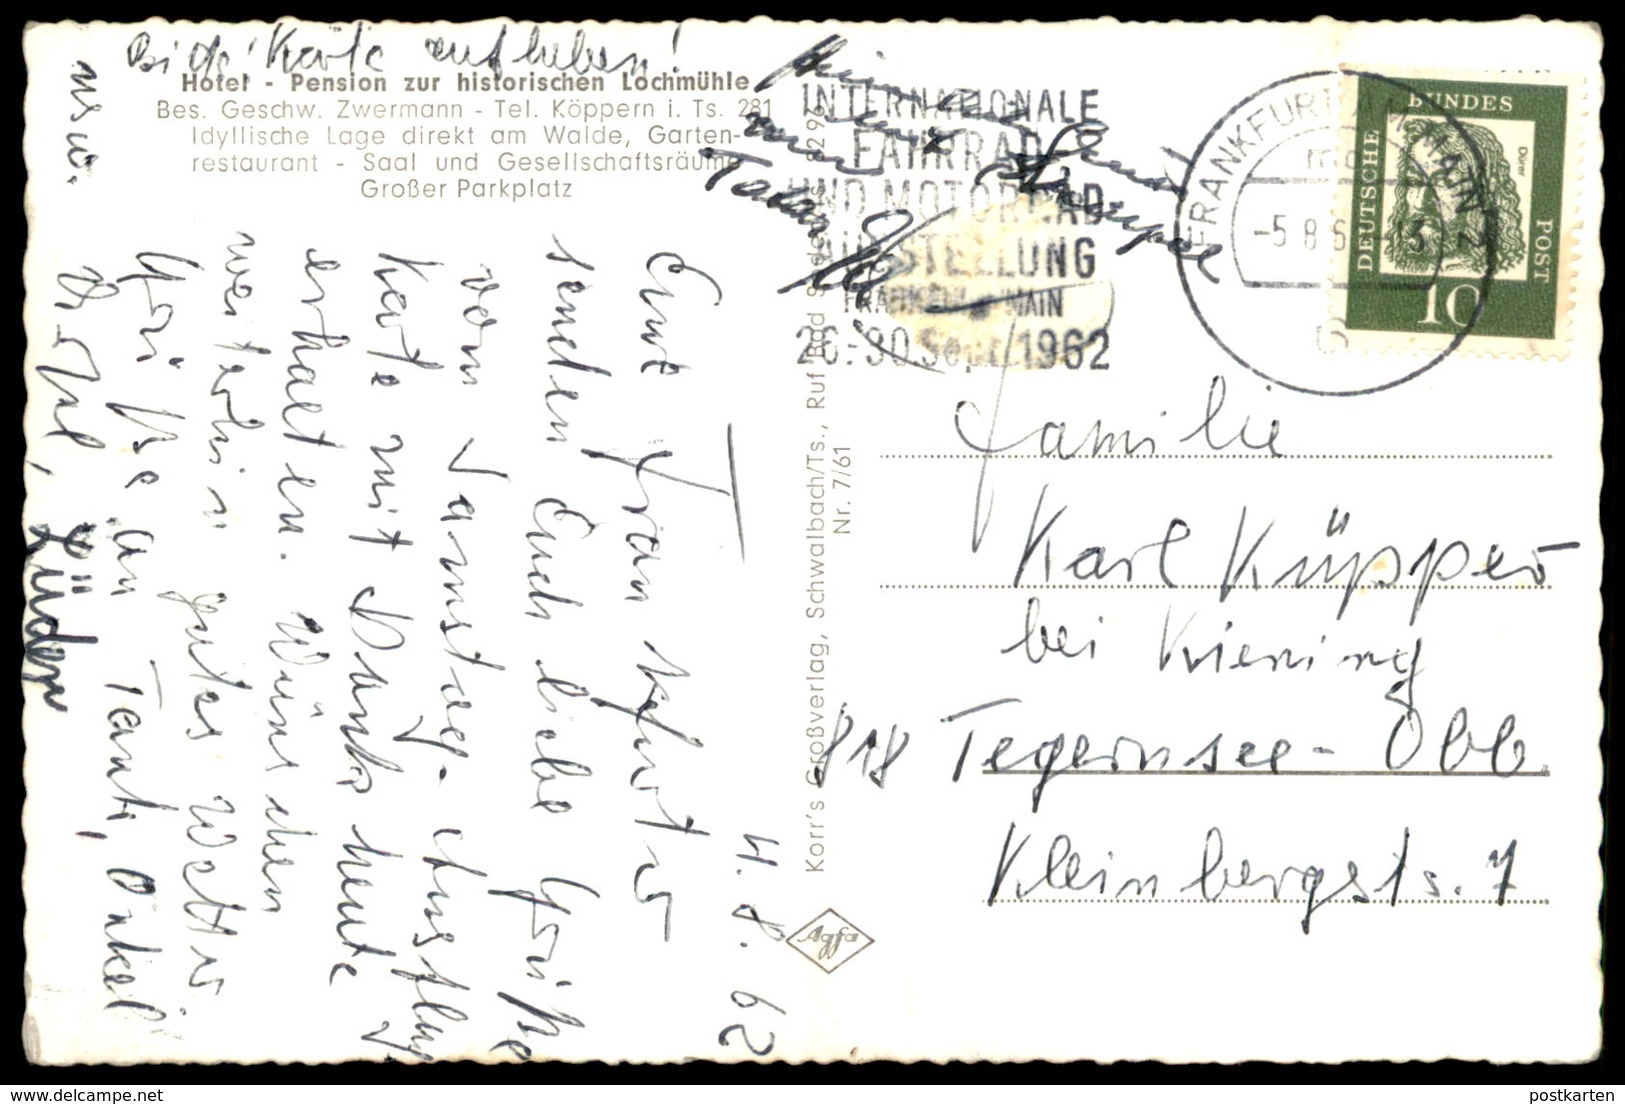 Bitte Karte aufheben!
Hotel - Pension zur historischen Lochmühle
Bes. Geschw. Zwermann - Tel. Köppern i. Ts. 281
Idyllische Lage direkt am Walde, Garten-
restaurant - Saal und Gesellschaftsräume
Großer Parkplatz
4.8.62
senden Euch liebe Grüße
vom Samstag-Ausflug
Karte mit Dank heute
erhalten. Wünschen
weiterhin gutes Wetter
Grüße an Tante, Onkel
usw.
Korr's Großverlag, Schwalbach/Ts., Ruf Bad Soden 8296
Nr. 7/61
Agfa
INTERNATIONALE
FAHRRAD
UND MOTORRAD
AUSSTELLUNG
FRANKFURT MAIN
26.-30. Sept. 1962
FRANKFURT AM MAIN 2
-5.8.6 -13
DEUTSCHE
BUNDES
POST
Dürer
10
Familie
Karl Küpper
bei Kriening
818 Tegernsee-Obb.
Kleinbergstr. 7
postkarten